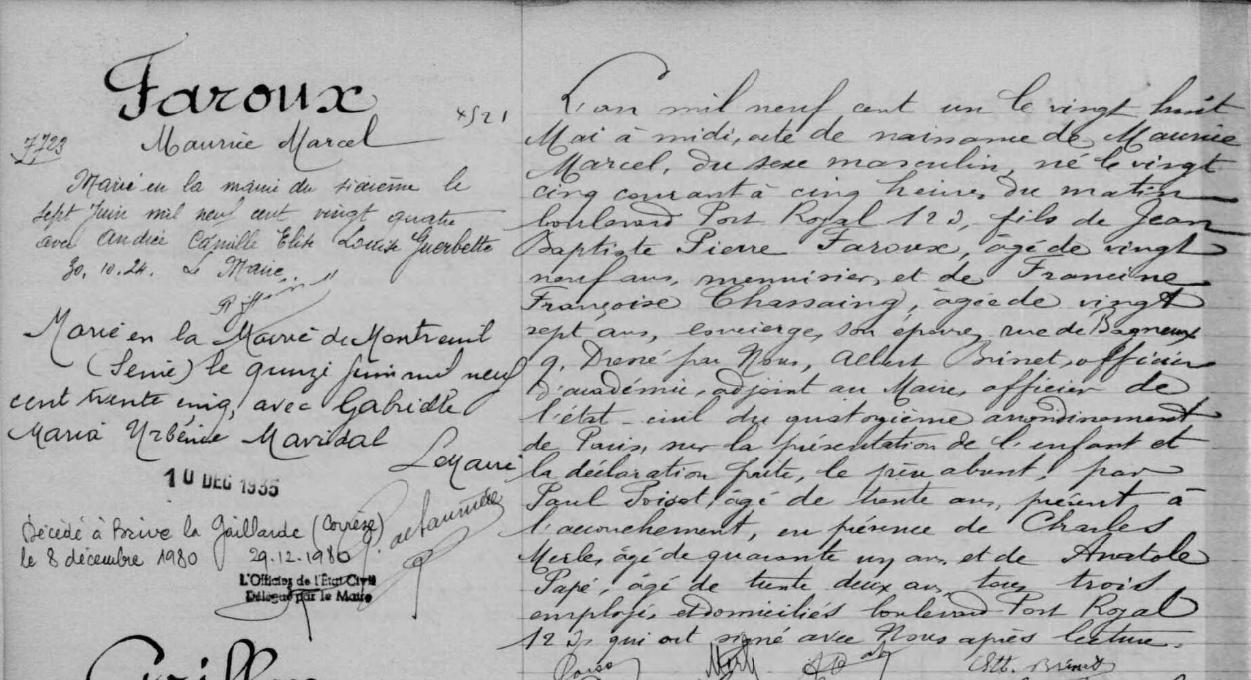 Faroux
4521
7723
Maurice Marcel
Marié en la mairie du sixième le
sept Juin mil neuf cent vingt quatre
avec Andrée Camille Elise Louise Guerbette
30.10.24. Le Maire.
Marié en la Mairie de Montreuil
(Seine) le quinze juin mil neuf
cent trente cinq, avec Gabrielle
Maria Urbénie Mavidal
Le Maire
10 DEC 1935
Décédé à Brive la Gaillarde (Corrèze)
le 8 décembre 1980 29.12.1980
L'Officier de l'Etat Civil
Délégué par le Maire
L'an mil neuf cent un le vingt huit
Mai à midi, acte de naissance de Maurice
Marcel, du sexe masculin, né le vingt
cinq courant à cinq heures du matin
boulevard Port Royal 123, fils de Jean
Baptiste Pierre Faroux, âgé de vingt
neuf ans, menuisier, et de Francine
Françoise Chassaing, âgée de vingt
sept ans, concierge, son épouse, rue de Bagneux
9. Dressé par Nous, Albert Brinet, officier
d'académie, adjoint au Maire, officier de
l'état-civil du quatorzième arrondissement
de Paris, sur la présentation de l'enfant et
la déclaration faite, le père absent, par
Paul Poisot, âgé de trente ans, présent à
l'accouchement, en présence de Charles
Merle, âgé de quarante un ans, et de Anatole
Papé, âgé de trente deux ans, tous trois
employés, et domiciliés boulevard Port Royal
123, qui ont signé avec Nous après lecture.